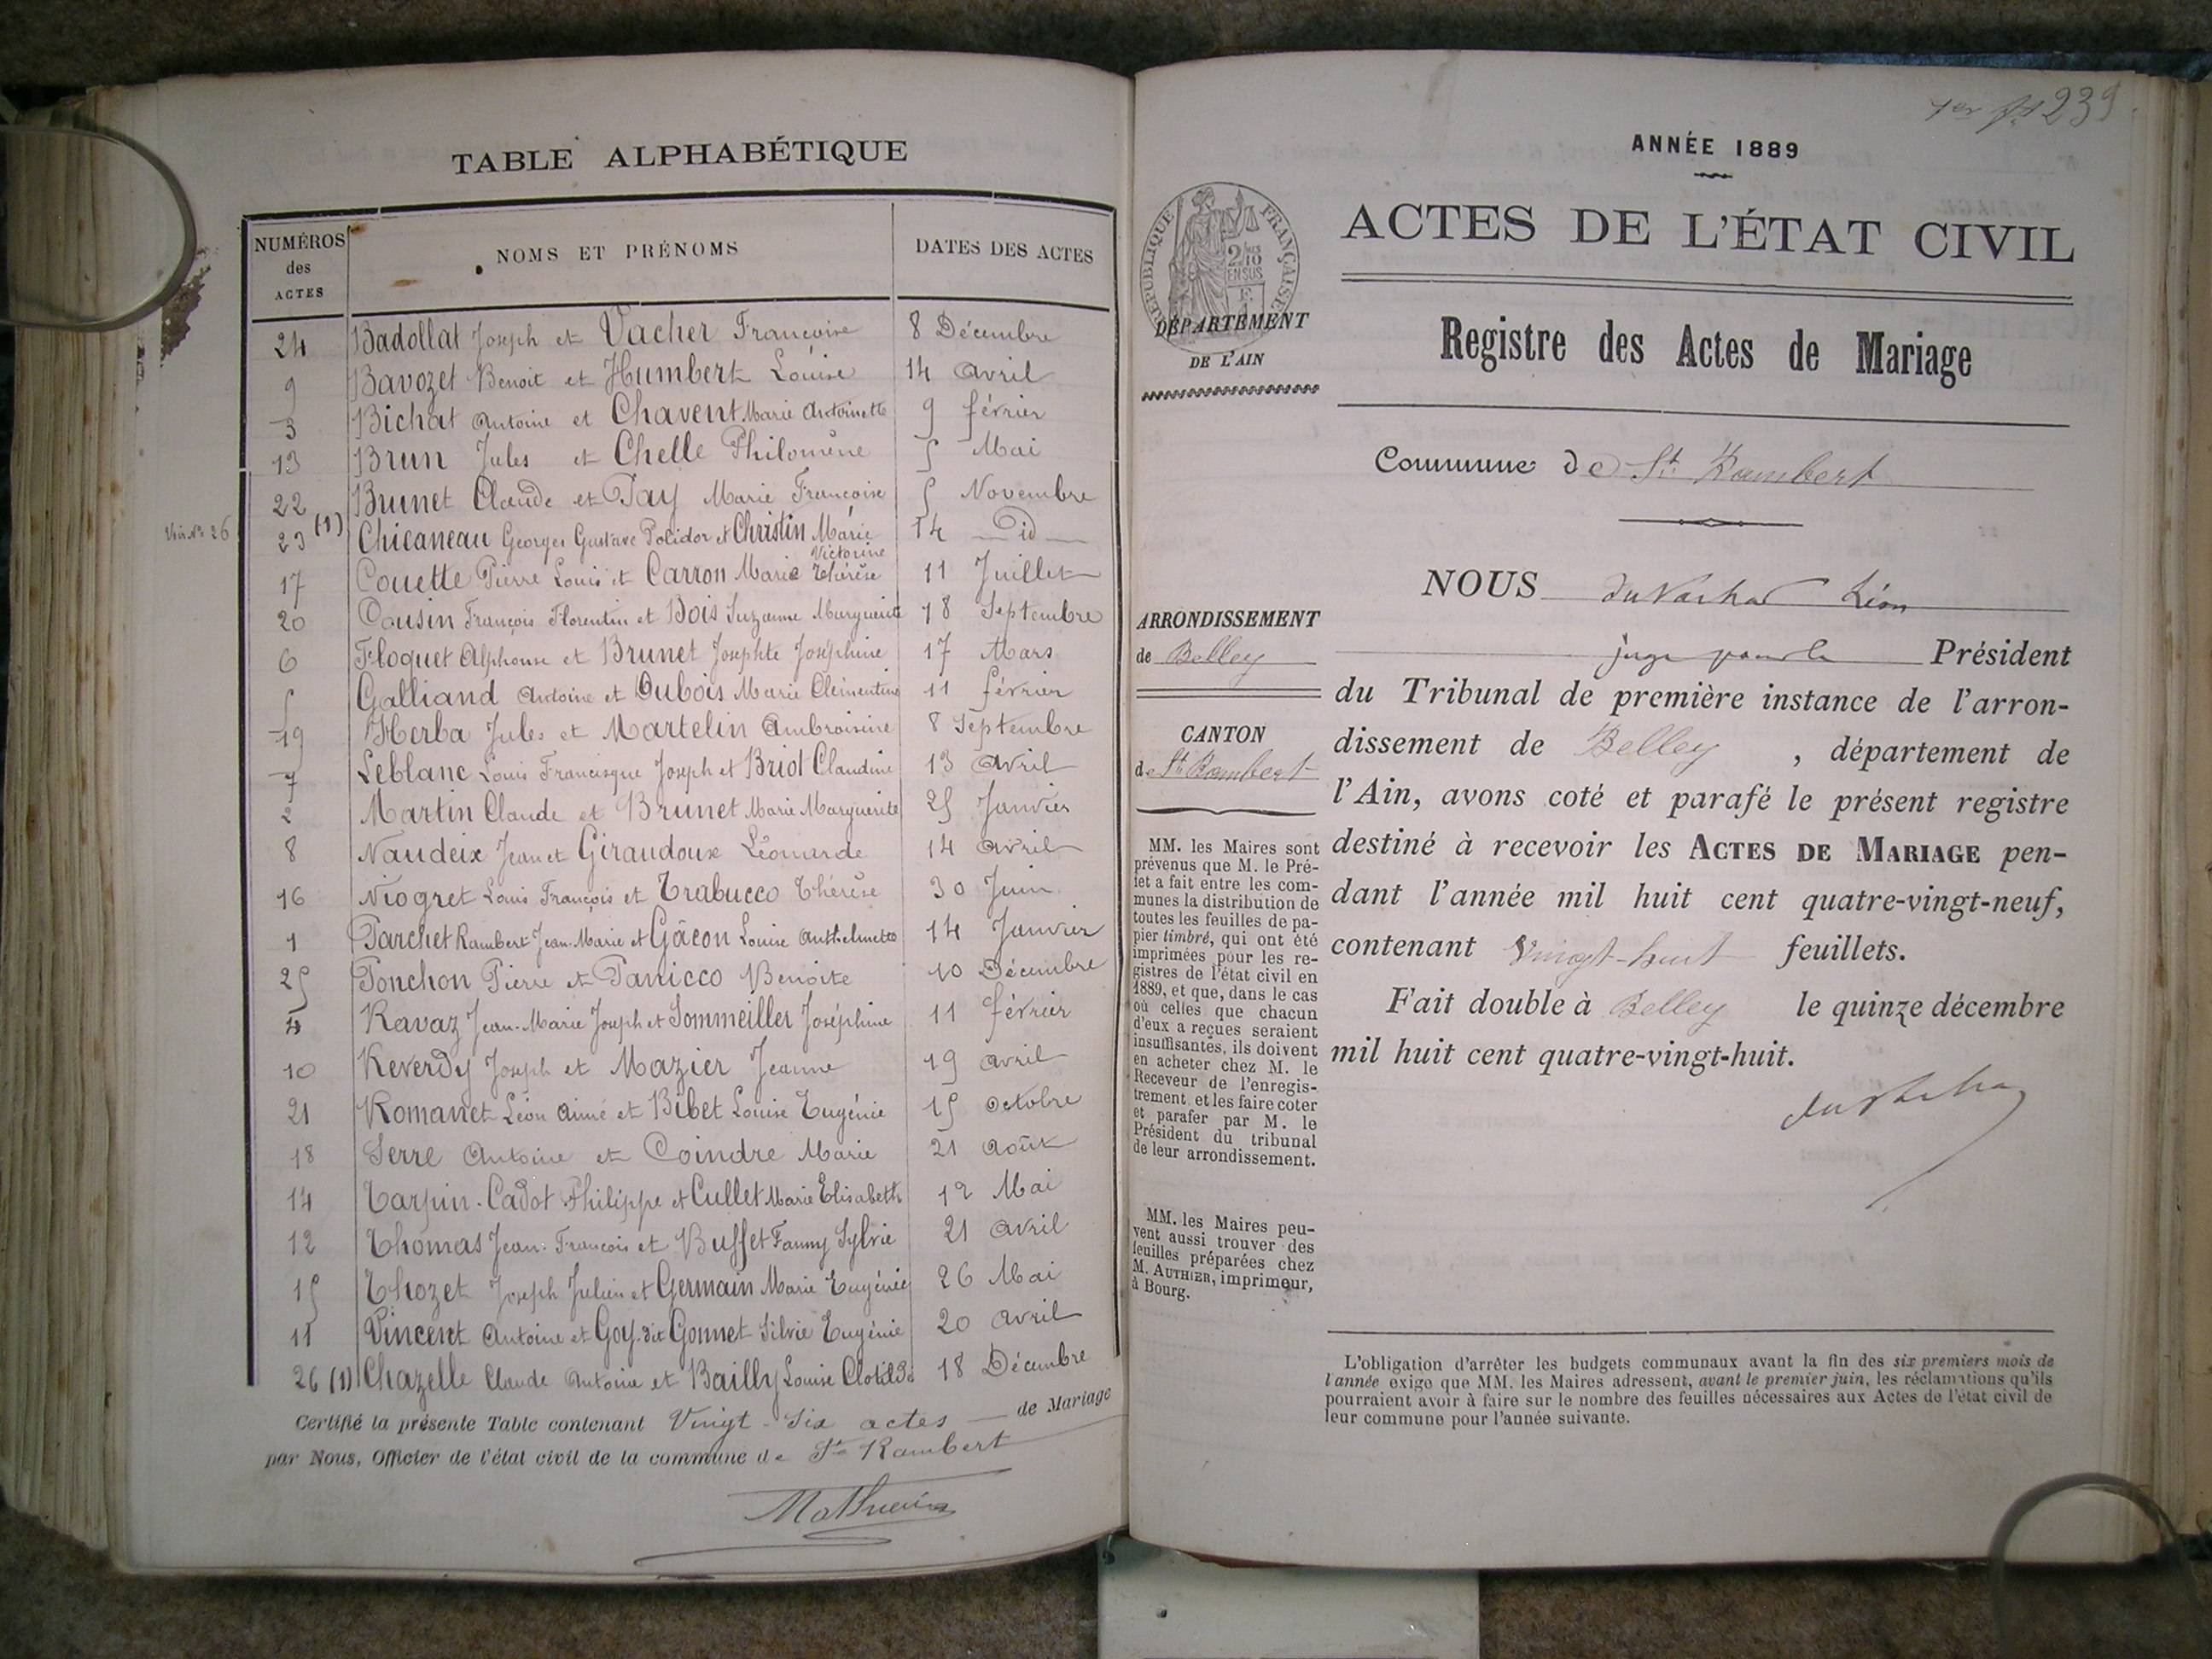 TABLE ALPHABÉTIQUE
NUMÉROS des ACTES NOMS ET PRÉNOMS DATES DES ACTES
24 Badollat Joseph et Vacher Françoise 8 Décembre
9 Bavozet Benoit et Humbert Louise 14 Avril
3 Bichat Antoine et Chavent Marie Antoinette 9 février
13 Brun Jules et Chelle Philomène 5 Mai
22 Brunet Claude et Pay Marie Françoise 5 Novembre
Voir No 26 23 (1) Chicaneau Georges Gustave Polidor et Christin Marie 14 — id —
Victorine
17 Couette Pierre Louis et Carron Marie Thérèse 11 Juillet
20 Cousin François Florentin et Bois Suzanne Marguerite 18 Septembre
6 Floquet Alphonse et Brunet Josephte Joséphine 17 Mars
5 Galliand Antoine et Dubois Marie Clémentine 11 février
19 Herba Jules et Martelin Ambroisine 8 Septembre
7 Leblanc Louis Francisque Joseph et Briot Claudine 13 Avril
2 Martin Claude et Brunet Marie Marguerite 25 Janvier
8 Naudeix Jean et Giraudoux Léonarde 14 Avril
16 Niogret Louis François et Trabucco Thérèse 30 Juin
1 Parchet Rambert Jean-Marie et Gâcon Louise Anthelmette 14 Janvier
25 Ponchon Pierre et Panicco Benoite 10 Décembre
4 Ravaz Jean-Marie Joseph et Sommeiller Joséphine 11 février
10 Reverdy Joseph et Mazier Jeanne 19 Avril
21 Romanet Léon Aimé et Bibet Louise Eugénie 15 Octobre
18 Serre Antoine et Coindre Marie 21 Août
14 Tarpin-Cadot Philippe et Cullet Marie Elisabeth 12 Mai
12 Thomas Jean-François et Buffet Fanny Sylvie 21 Avril
15 Thozet Joseph Julien et Germain Marie Eugénie 26 Mai
11 Vincent Antoine et Goy dit Gonnet Silvie Eugénie 20 Avril
26 (1) Chazelle Claude Antoine et Bailly Louise Clotilde 18 Décembre
Certifié la présente Table contenant Vingt-Six actes — de Mariage
par Nous, Officier de l'état civil de la commune de St Rambert
239
ANNÉE 1889
RÉPUBLIQUE FRANÇAISE
2/10
EN SUS
DÉPARTEMENT
DE L'AIN
ACTES DE L'ÉTAT CIVIL
Registre des Actes de Mariage
Commune de St Rambert
ARRONDISSEMENT
de Belley
CANTON
de St Rambert
MM. les Maires sont
prévenus que M. le Pré-
fet a fait entre les com-
munes la distribution de
toutes les feuilles de pa-
pier timbré, qui ont été
imprimées pour les re-
gistres de l'état civil en
1889, et que, dans le cas
où celles que chacun
d'eux a reçues seraient
insuffisantes, ils doivent
en acheter chez M. le
Receveur de l'enregis-
trement et les faire coter
et parafer par M. le
Président du tribunal
de leur arrondissement.
MM. les Maires peu-
vent aussi trouver des
feuilles préparées chez
M. AUTHIER, imprimeur,
à Bourg.
NOUS Léon
juge pour le Président
du Tribunal de première instance de l'arron-
dissement de Belley , département de
l'Ain, avons coté et parafé le présent registre
destiné à recevoir les ACTES DE MARIAGE pen-
dant l'année mil huit cent quatre-vingt-neuf,
contenant Vingt-huit feuillets.
Fait double à Belley le quinze décembre
mil huit cent quatre-vingt-huit.
L'obligation d'arrêter les budgets communaux avant la fin des six premiers mois de
l'année exige que MM. les Maires adressent, avant le premier juin, les réclamations qu'ils
pourraient avoir à faire sur le nombre des feuilles nécessaires aux Actes de l'état civil de
leur commune pour l'année suivante.